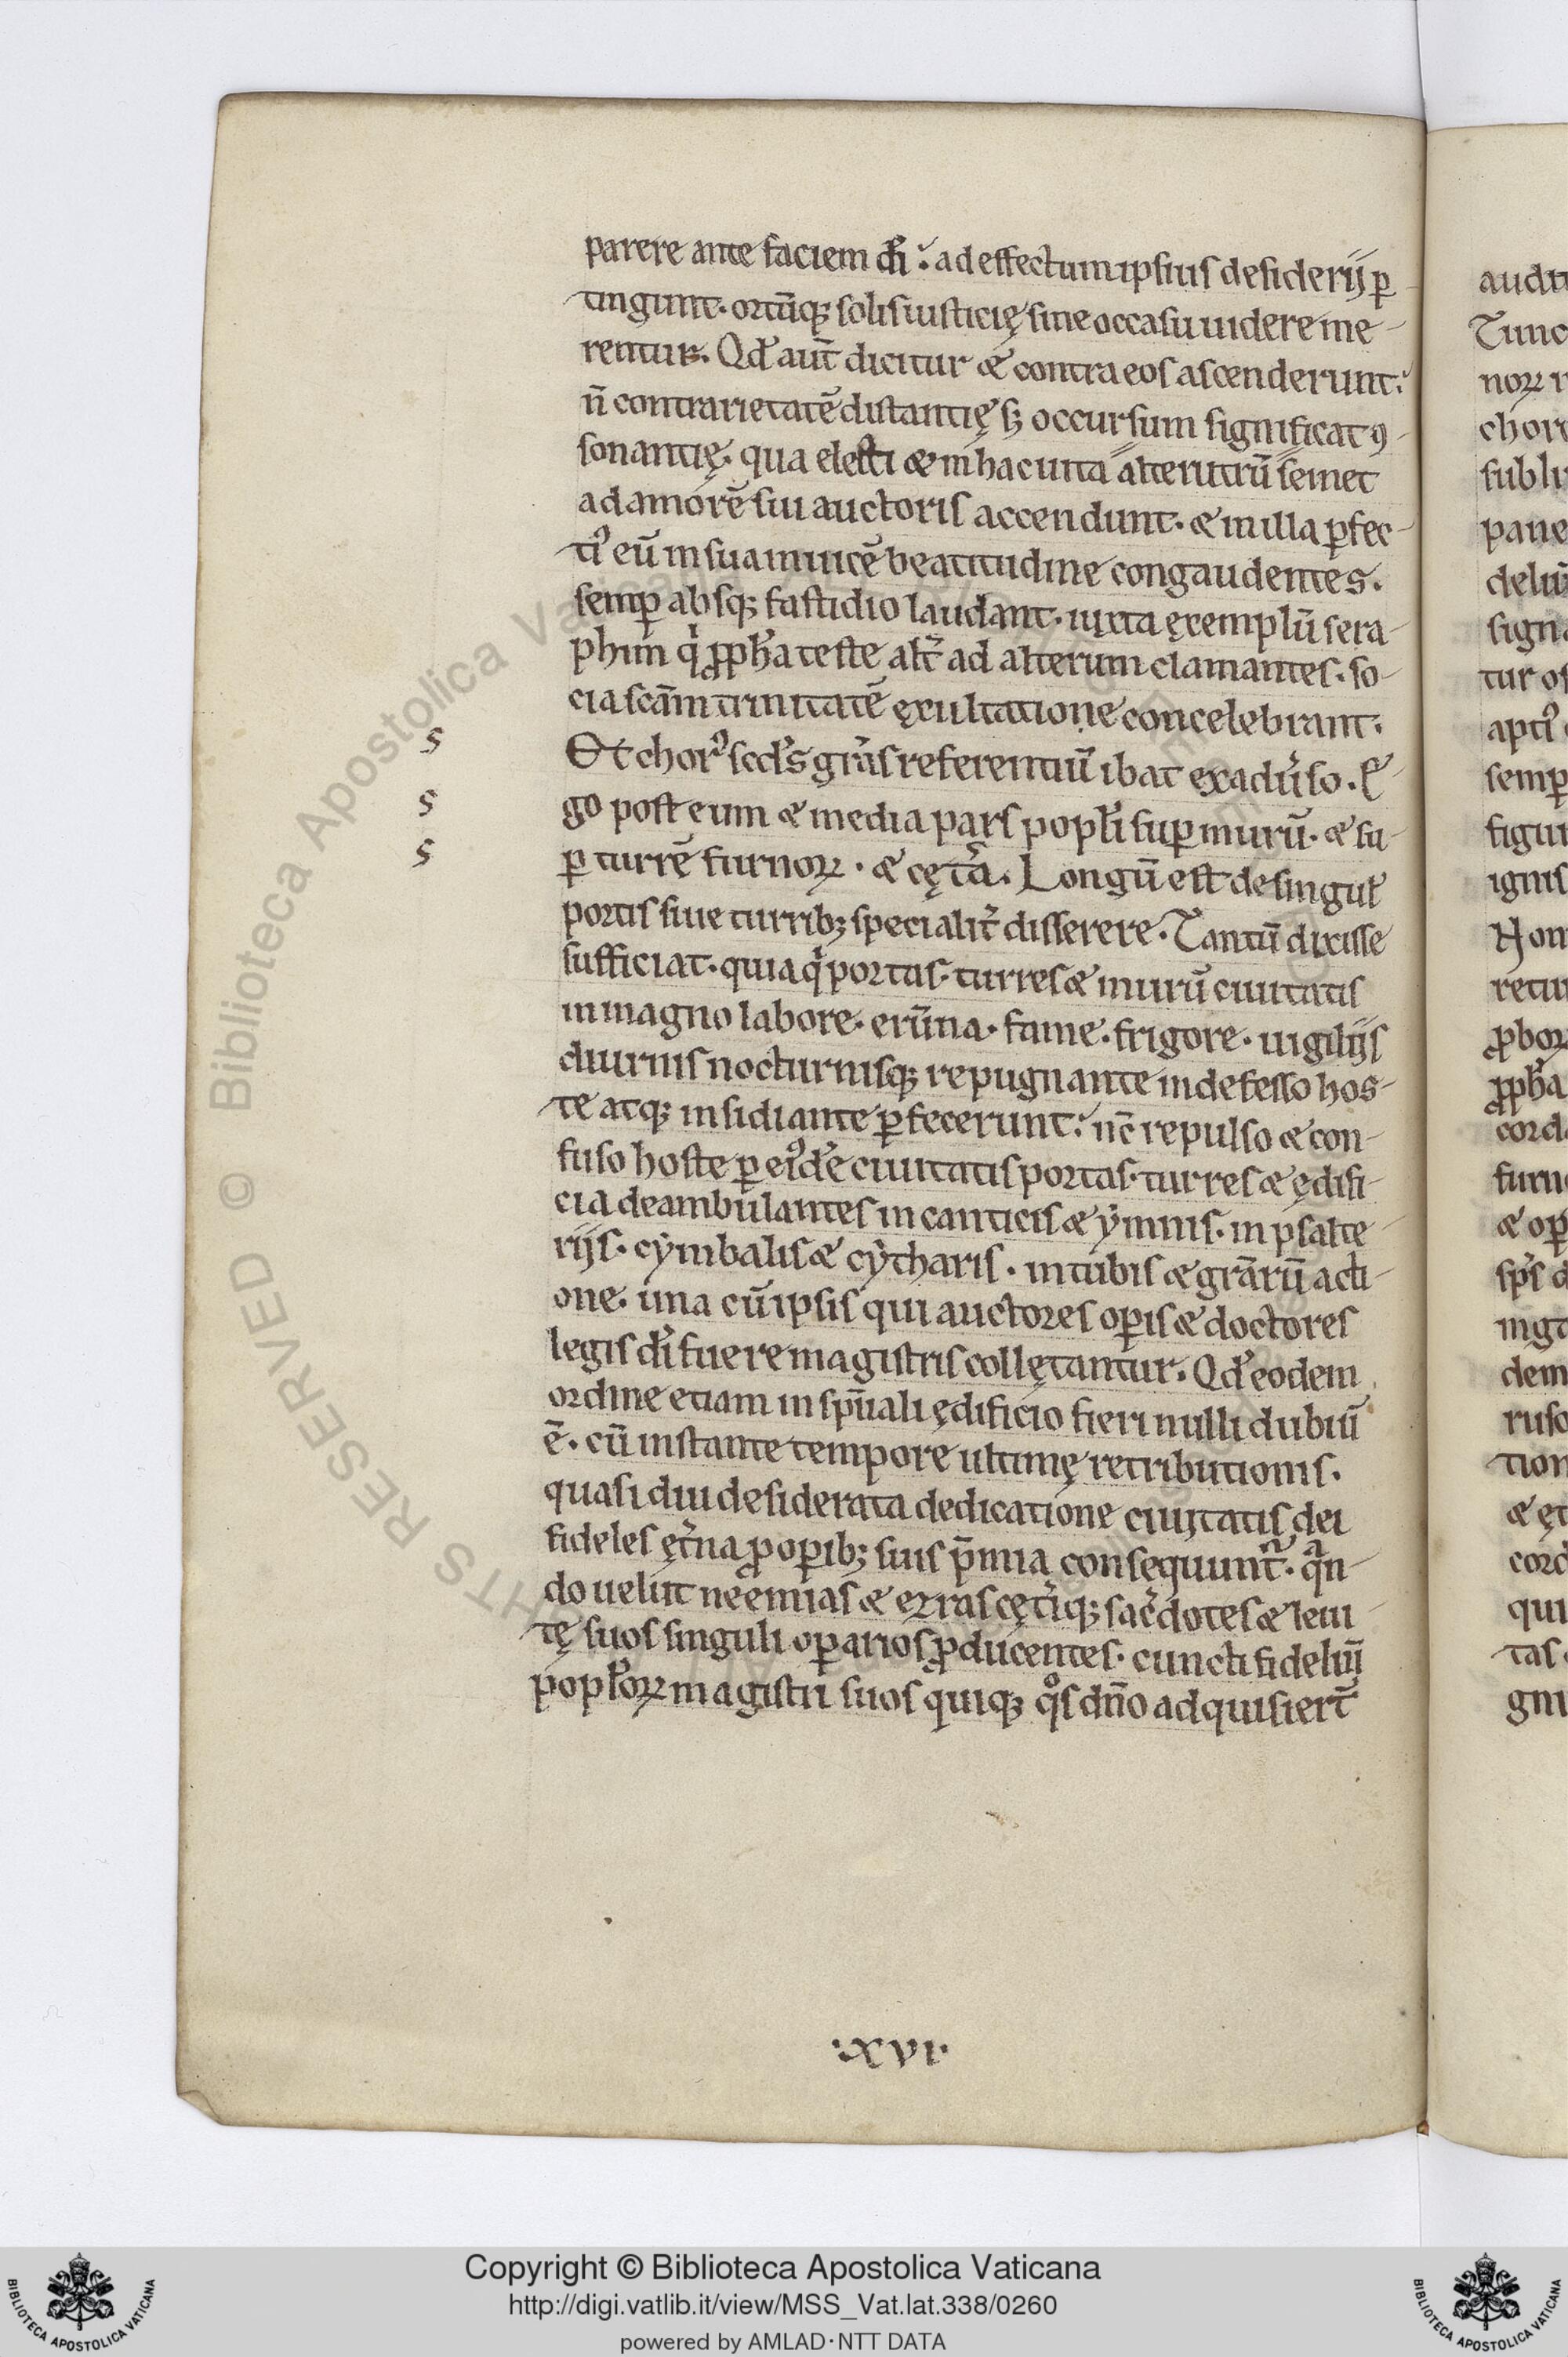 parere ante faciem dī ؛ ad effectum ipsius desiderij ꝑ
tingunt. ortūq; solis iusticię sine occasu uidere me
rentur. Qđ aut̄ dicitur & contra eos ascenderunt؛
n̄ contrarietatē distantię sꝫ occursum significat ꝯ
sonantię. qua electi & in hac uita alterutrū semet
ad amorē sui auctoris accendunt. & in illa ꝑfec
tiꝰ eū in sua inuicē beatitudine congaudentes.
semꝑ absq; fastidio laudant. iuxta exemplū sera
phim qͥ ꝓpħa teste alt̄ ad alterum clamantes. so
cia scām trinitatē exultatione concelebrant.
Et chorꝰ scđs grās referentiū ibat ex adu̓so. & e
go post eum & media pars popłi suꝑ murū. & su
ꝑ turrē furnoꝝ. & cęta̓. Longū est de singuł
portis siue turribꝫ specialit̓ disserere. Tantū dixisse
sufficiat. quia qͥ portas. turres & murū ciuitatis
in magno labore. erūna. fame. frigore. uigilijs
diurnis nocturnisq; repugnante indefesso hos
te atq; insidiante ꝑfecerunt؛ nc̄ repulso & con
fuso hoste ꝑ eiꝰdē ciuitatis portas. turres & ędifi
cia deambulantes in canticis & ẏmnis. in psalte
rijs. cẏmbalis & cẏtharis. in tubis & grārū acti
one. una cū ipsis qui auctores oꝑis & doctores
legis dī fuere magistris collętantur. Qđ eodem
ordine etiam in spūali ędificio fieri nulli dubiū
ē. cū instante tempore ultimę retributionis.
quasi diu desiderata dedicatione ciuitatis dei
fideles ęt̓na ꝓ oꝑibꝫ suis p̄mia consequunt̄. qͣn
do uelut neemias & ezras cęt̓iq; sac̓dotes & leui
tę suos singuli oꝑarios ꝓducentes. cuncti fideliū
popłoꝝ magistri suos quiq; qͦs dn̄o adquisiert̄
s
s
s
·xvi·
audi
Tunc
noꝝ
chor
subli
pane
signa
tur os
aptiꝰ
semꝑ
figur
ignis
Non
retur
ꝓboꝝ
ꝓpħa
corda
furn
& oꝑ
sps̄
dem
ruso
tion
& ęt
cord
qui
tas
gni
Copyright © Biblioteca Apostolica Vaticana
http://digi.vatlib.it/view/MSS_Vat.lat.338/0260
powered by AMLAD·NTT DATA
BIBLIOTECA APOSTOLICA VATICANA
BIBLIOTECA APOSTOLICA VATICANA